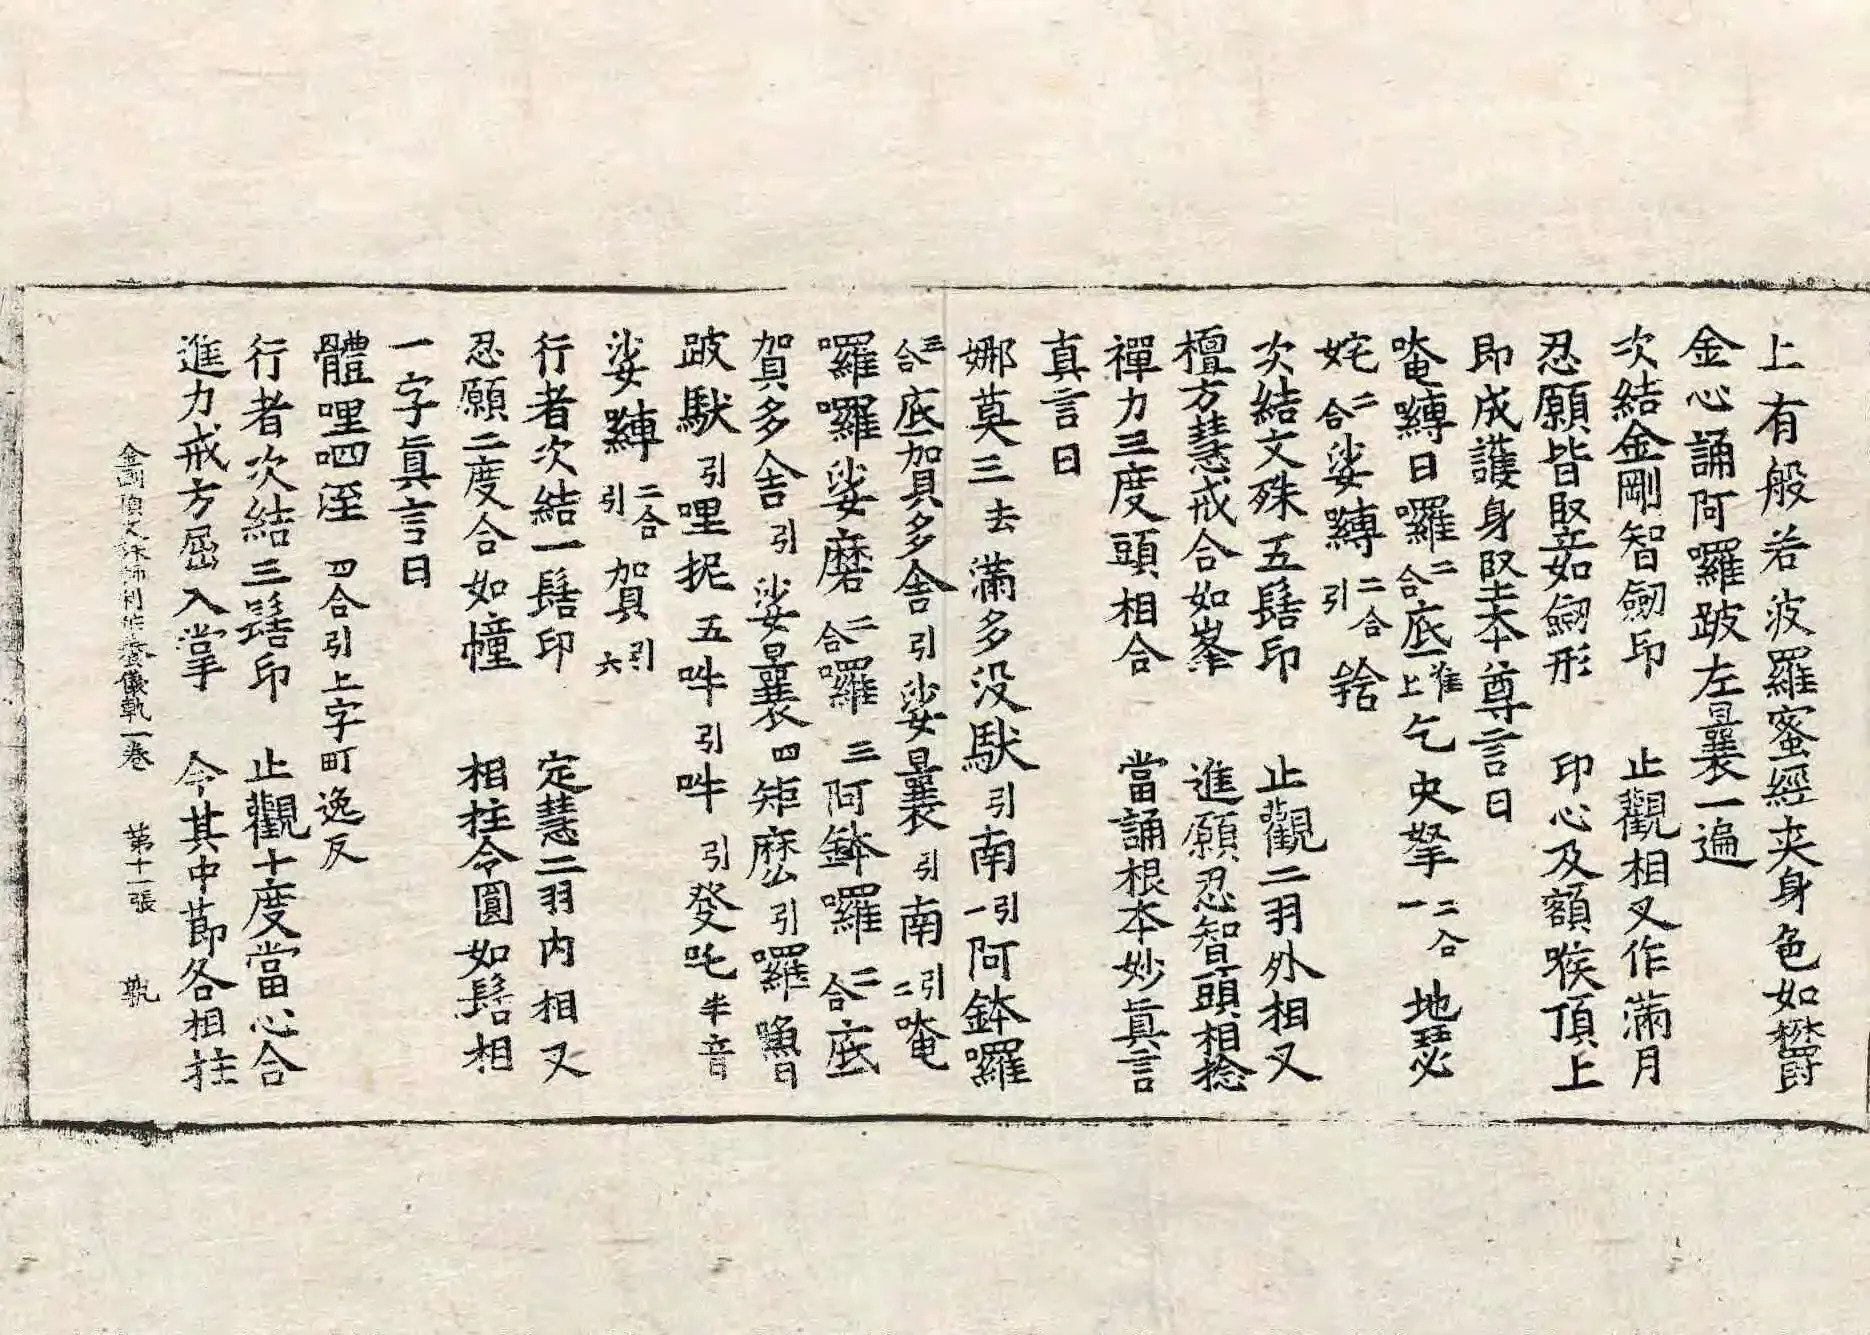 上有般若波羅蜜經夾身色如欝
金心誦阿囉跛左曩一遍
次結金剛智劒印 止觀相叉作滿月
忍願皆竪如劒形 印心及額喉頂上
即成護身堅本尊言曰
唵嚩日囉二合底准上乞史拏二合一地瑟
姹二合娑嚩二合引
次結文殊五髻印 止觀二羽外相叉
檀方慧戒合如峯 進願忍智頭相捻
禪力三度頭相合 當誦根本妙眞言
真言曰
娜莫三去滿多没馱引南引一阿鉢囉
三合底賀多舍引娑曩引南引二唵
囉囉娑磨二合囉三阿鉢囉二合底
賀多舍引娑曩四矩麽引囉嚕
跛馱引哩抳五吽引吽引發吒半音
娑嚩二合引賀引六
行者次結一髻印 定慧二羽内相叉
忍願二度合如幢 相拄令圓如髻相
一字眞言曰
體哩呬淫四合引上字町逸反
行者次結三髻印 止觀十度當心合
進力戒方屈入掌 令其中節各相拄
金剛頂文殊師利供養儀軌一卷 第十一張 孰